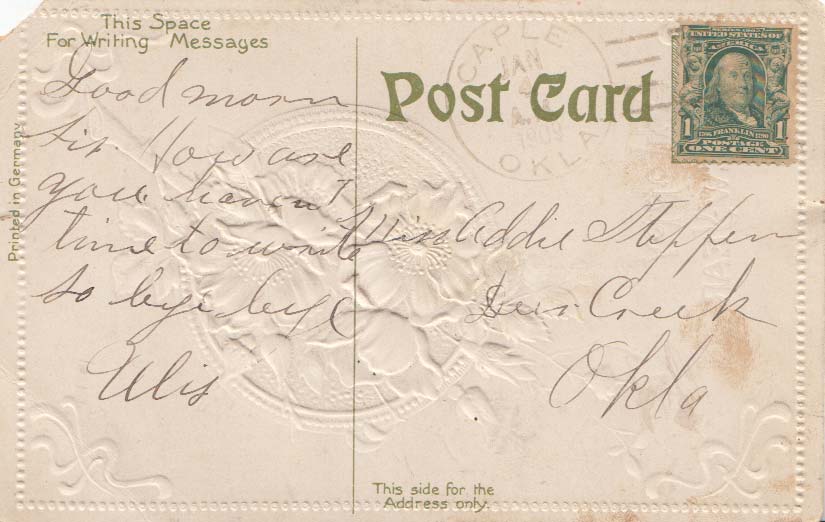 This Space
For Writing Messages
Good morn
sir. How are
you. haven't
time to write
so bye bye
Elis
Printed in Germany
Post Card
CAPLE
JAN
4
1909
OKLA
SERIES 1902
UNITED STATES OF
AMERICA
1 1
1706 FRANKLIN 1790
POSTAGE
ONE CENT
Miss Addie Steffen
Deer Creek
Okla
This side for the
Address only.